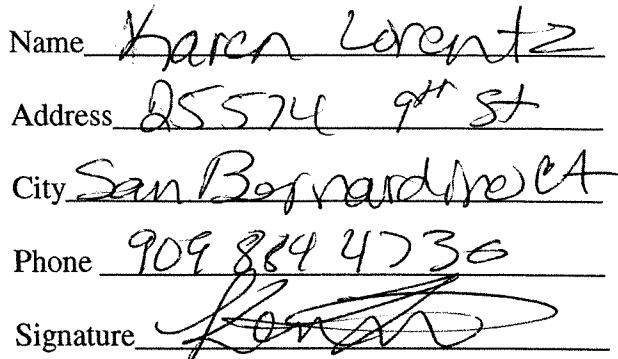 Name Karen Lorentz
Address 25574 9th St
City San Bernardino CA
Phone 909 884 4736
Signature